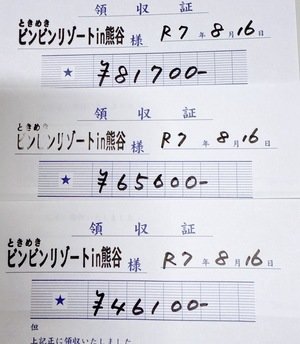 領収証
ときめき
ビンビンリゾートin熊谷 様 R7年8月16日
★ ¥81700-
領収証
ときめき
ビンビンリゾートin熊谷 様 R7年8月16日
★ ¥65600-
領収証
ときめき
ビンビンリゾートin熊谷 様 R7年8月16日
★ ¥46100-
但
上記正に領収いたしました